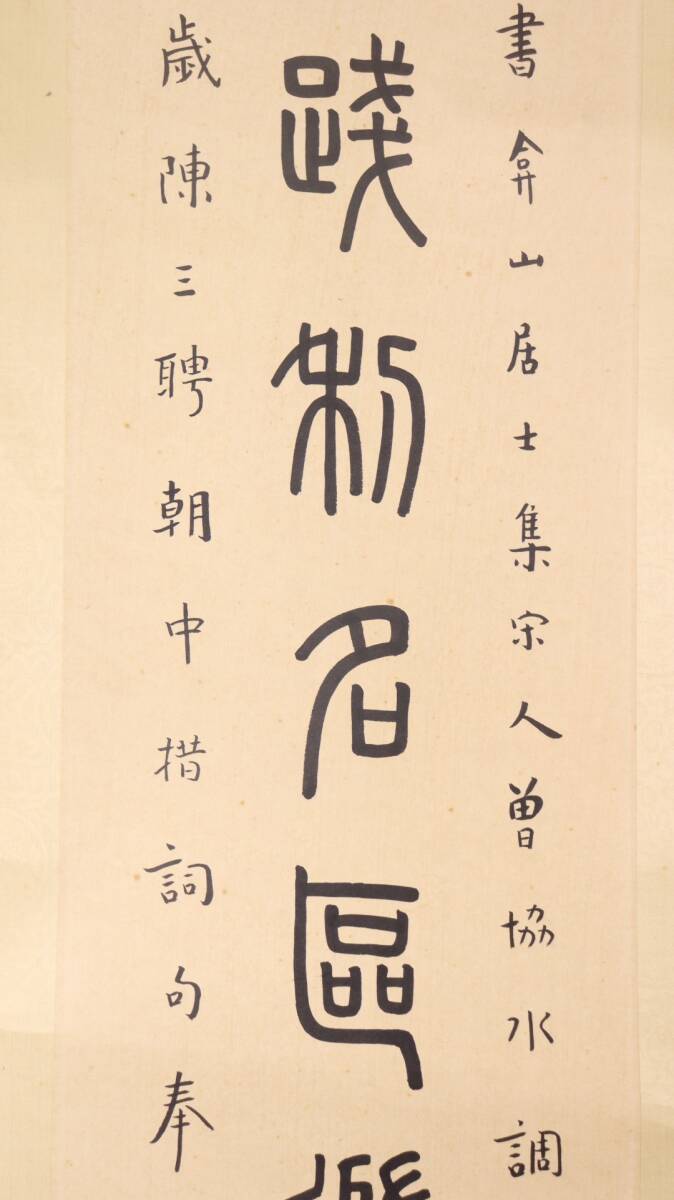 書弇山居士集宋人曾協水調
踐利名區
歲陳三聘朝中措詞句奉